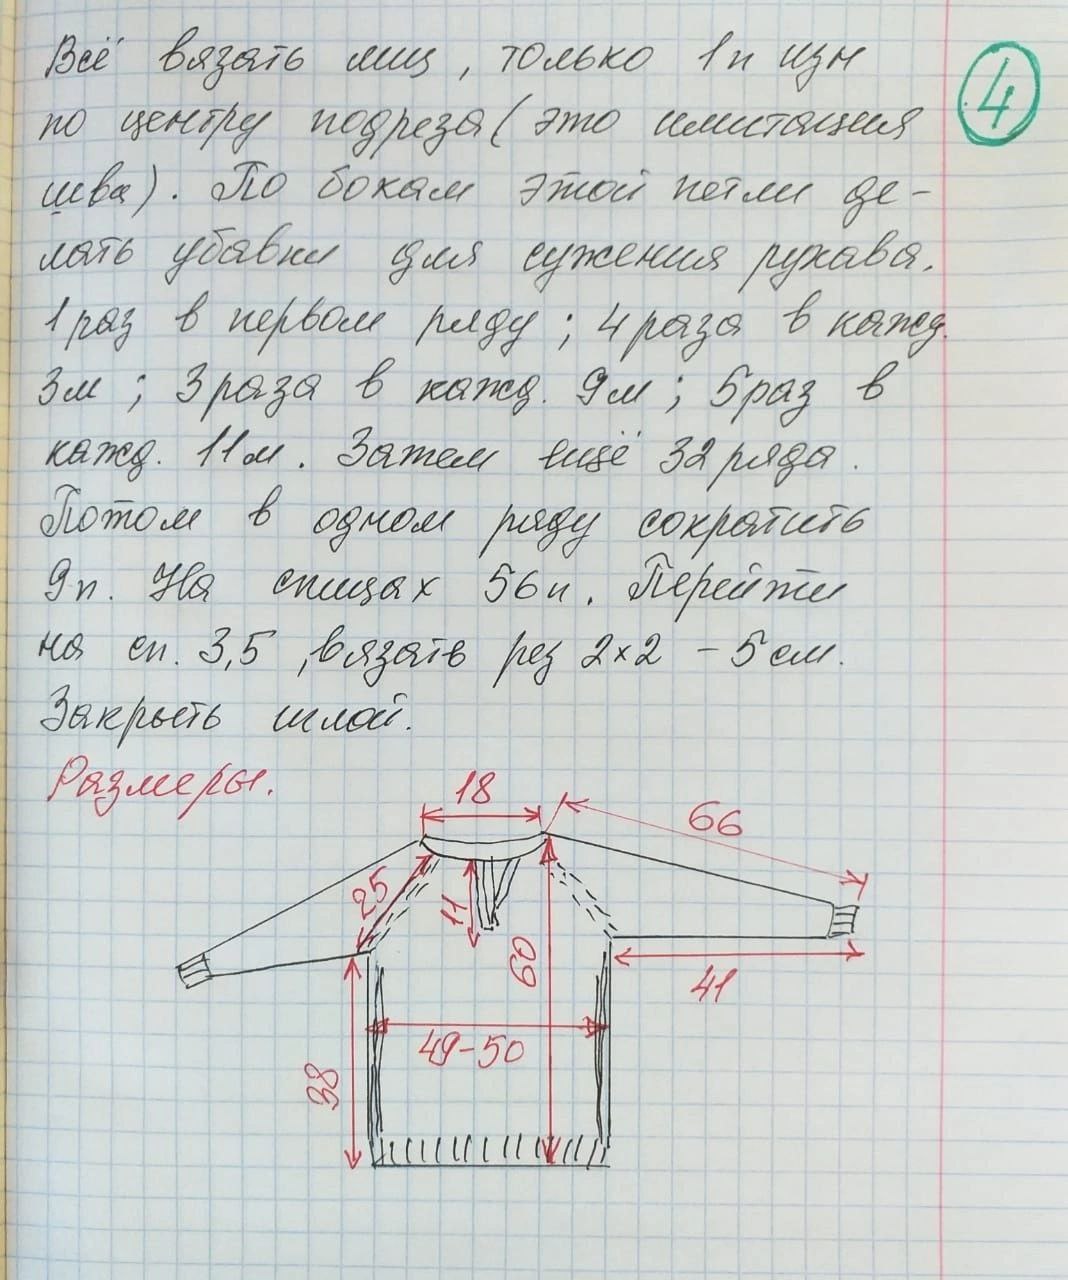 Всё вязать лиц, только 1п изн
4
по центру подреза (это имитация
шва). По бокам этой петли де-
лать убавки для сужения рукава.
1 раз в первом ряду; 4 раза в кажд.
3м; 3 раза в кажд. 9м; 5 раз в
кажд. 11м. Затем ещё 32 ряда.
Потом в одном ряду сократить
9п. На спицах 56п. Перейти
на сп. 3,5, вязать рез 2×2 - 5 см.
Закрыть иглой.
Размеры.
18
66
25
11
60
41
49-50
38